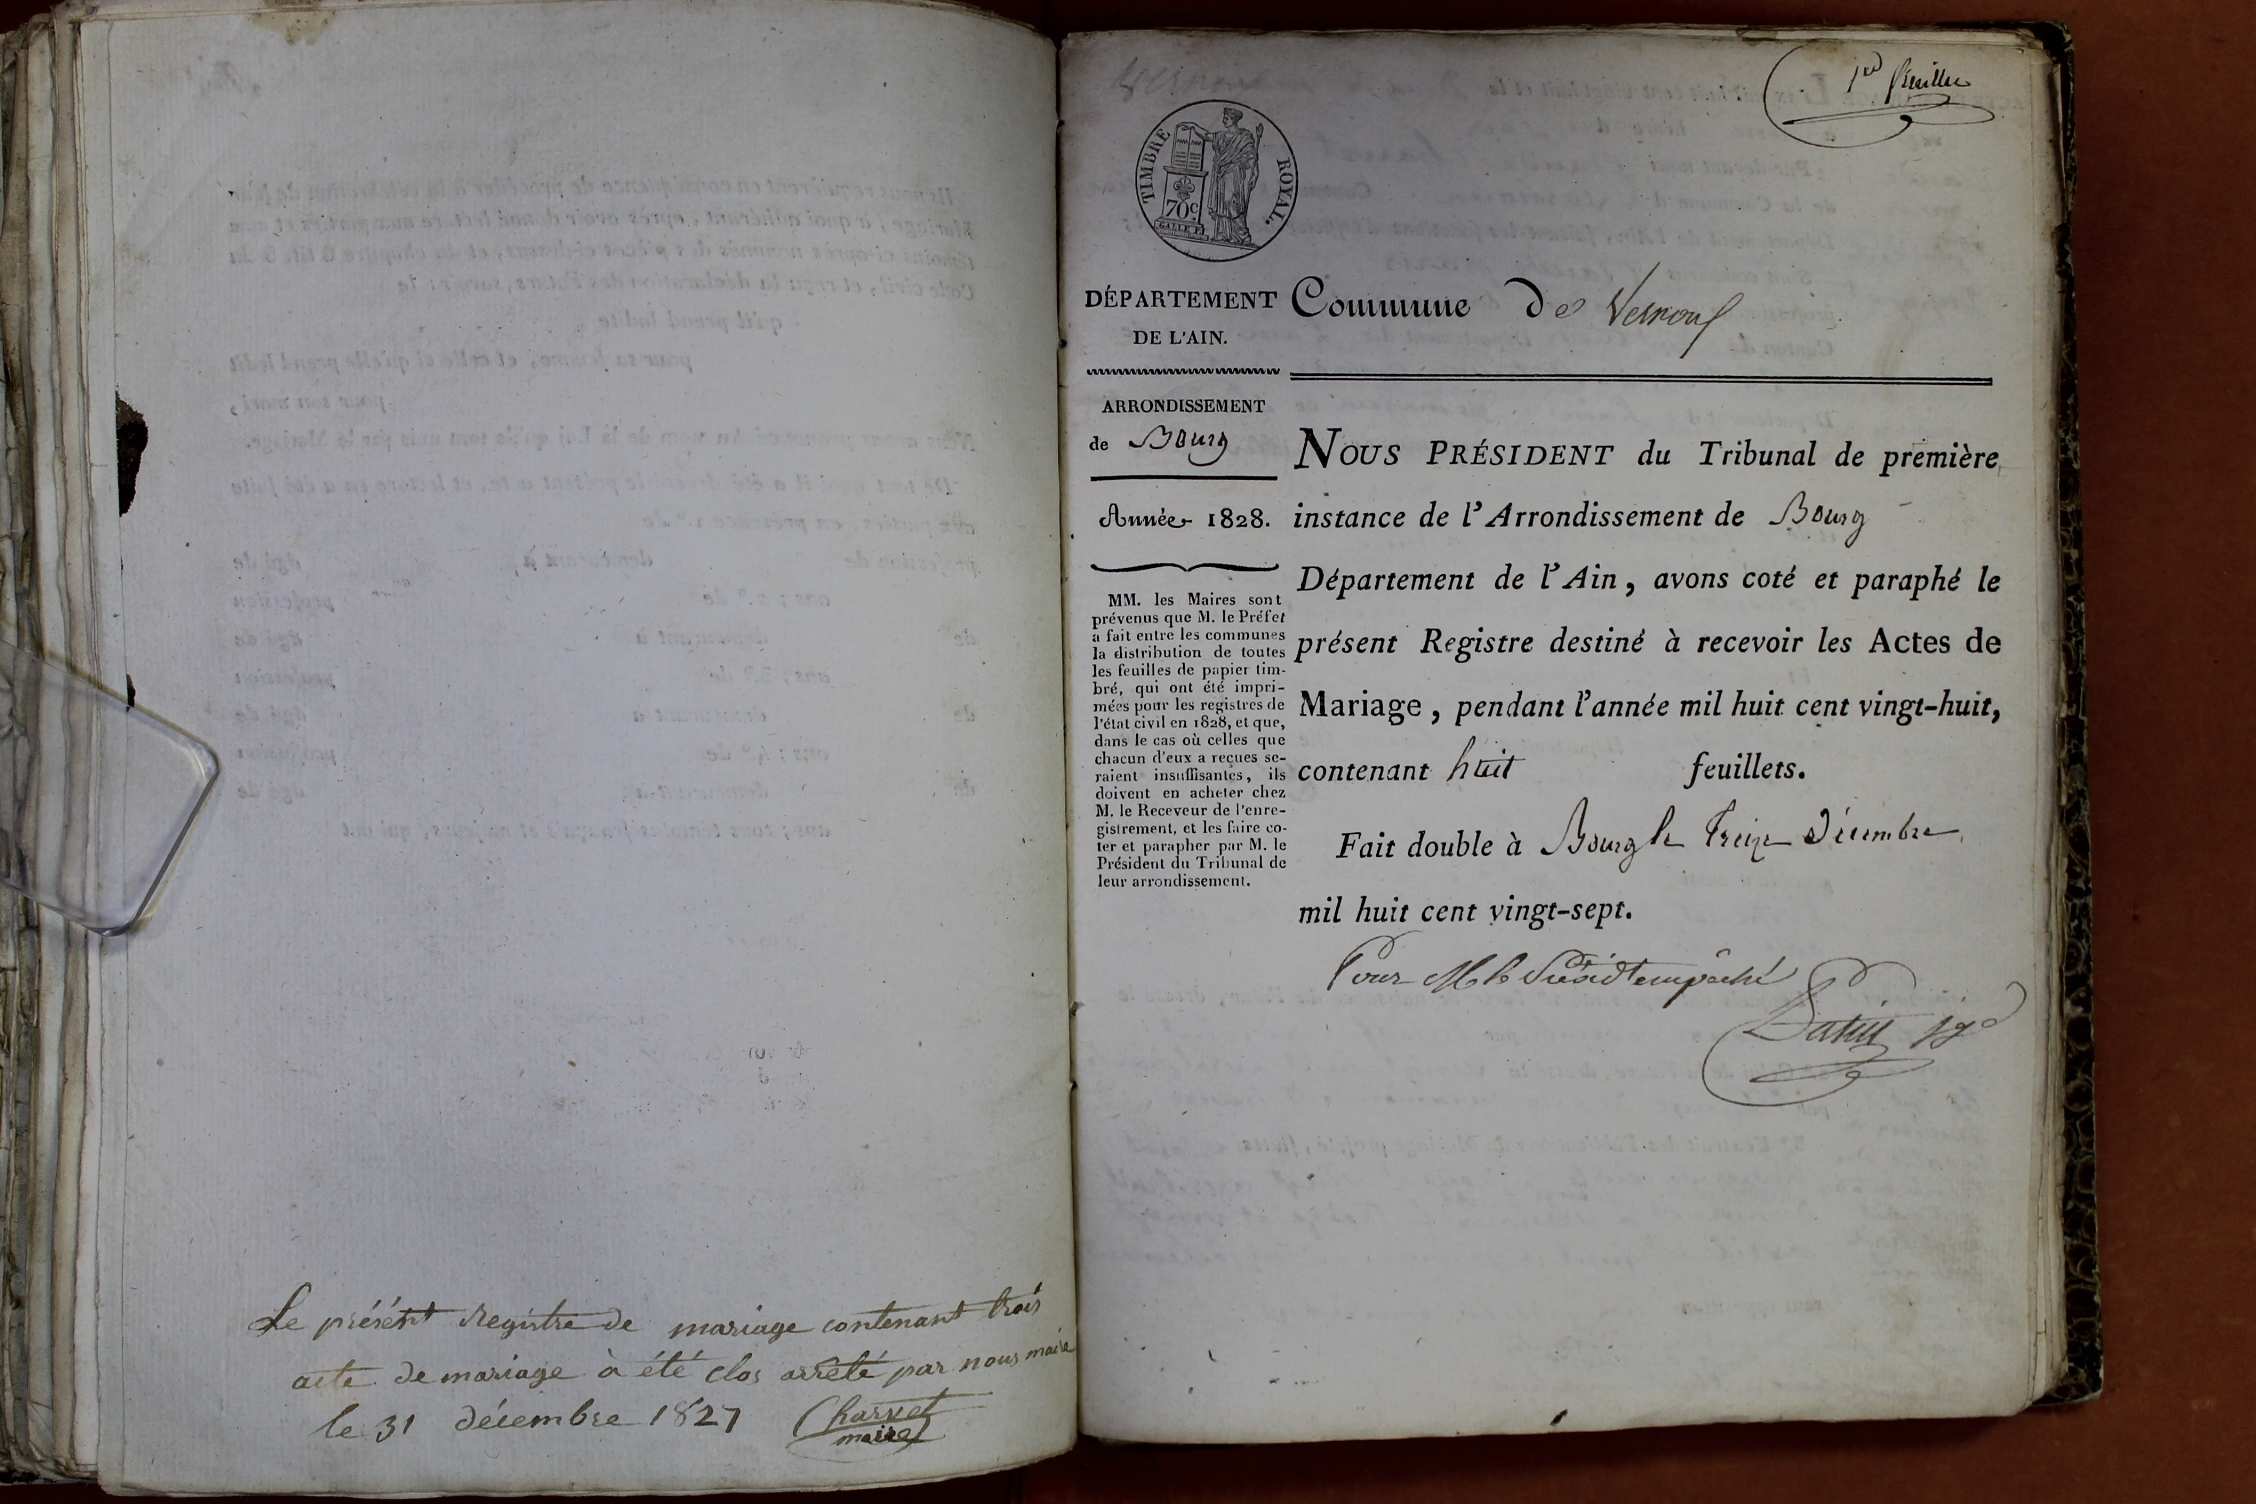 Le présént registre de mariage contenant trois
acte de mariage à été clos arrêté par nous maire
le 31 décembre 1827 Charvet
maire
1er feuillet
TIMBRE ROYAL.
70c
DÉPARTEMENT
DE L'AIN.
Commune de Vernoux
ARRONDISSEMENT
de Bourg
Année 1828.
MM. les Maires sont
prévenus que M. le Préfet
a fait entre les communes
la distribution de toutes
les feuilles de papier tim-
bré, qui ont été impri-
mées pour les registres de
l'état civil en 1828, et que,
dans le cas où celles que
chacun d'eux a reçues se-
raient insuffisantes, ils
doivent en acheter chez
M. le Receveur de l'enre-
gistrement, et les faire co-
ter et parapher par M. le
Président du Tribunal de
leur arrondissement.
NOUS PRÉSIDENT du Tribunal de première
instance de l'Arrondissement de Bourg
Département de l'Ain, avons coté et paraphé le
présent Registre destiné à recevoir les Actes de
Mariage, pendant l'année mil huit cent vingt-huit,
contenant huit feuillets.
Fait double à Bourg le Treize Décembre
mil huit cent vingt-sept.
Pour M le Présidt empêché